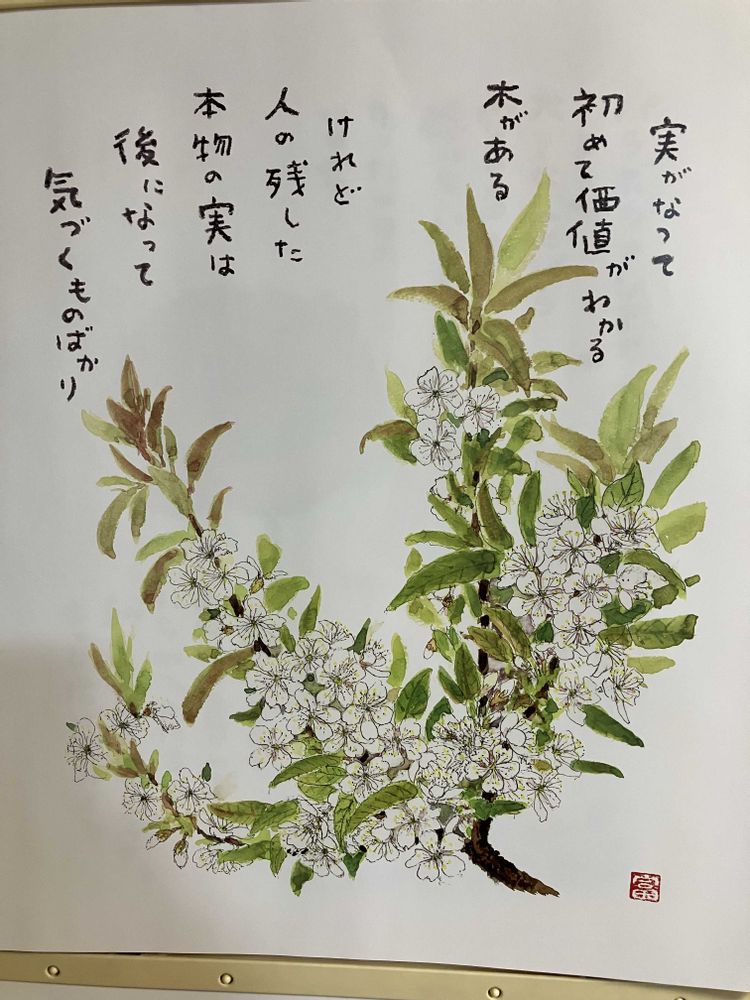 実がなって
初めて価値がわかる
木がある
けれど
人の残した
本物の実は
後になって
気づくものばかり